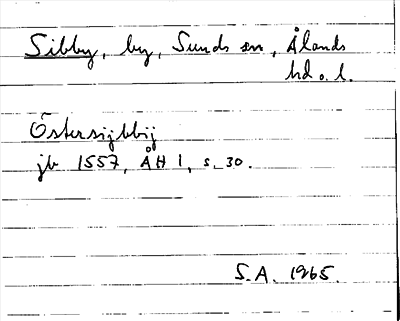 Sibby, by, Sunds sn, Ålands
hd o. l.
Östersijbbij
jb 1557, ÅH 1, s. 30.
S.A. 1965.